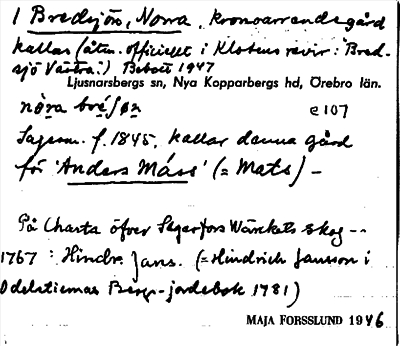 1 Bredsjön, Norra, kronoarrendegård
kallas (åtm. officiellt i Klotens revir: Bred-
sjö Västra.) Bebott 1947
Ljusnarsbergs sn, Nya Kopparbergs hd, Örebro län.
nòra bréʃøn c 107
Sagesm. f. 1845, kallar denna gård
för 'Anders Máss' (= Mats) –
På Charta öfver Segerfors Wärkets skog --
1767: Hindr. Jans. (= Hindrich Jansson i
Odelstiernas Bergs-jordebok 1781)
MAJA FORSSLUND 1946